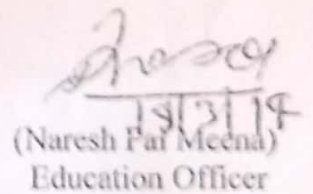 18/3/14
(Naresh Pal Meena)
Education Officer